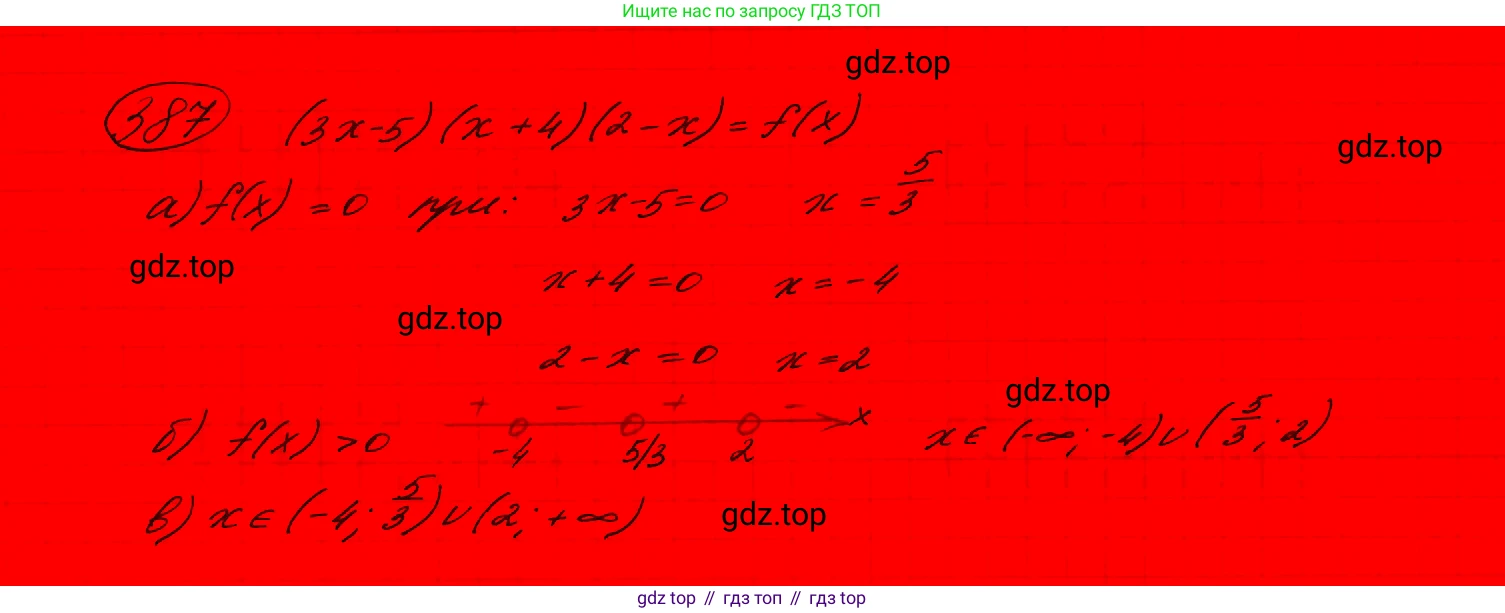 Ищите нас по запросу ГДЗ ТОП
gdz.top
387 (3x-5)(x+4)(2-x)=f(x)
gdz.top
а) f(x)=0 при: 3x-5=0 x=5/3
gdz.top
x+4=0 x=-4
gdz.top
2-x=0 x=2
gdz.top
б) f(x)>0 + - + - x x∈(-∞;-4)∪(5/3;2)
-4 5/3 2
в) x∈(-4;5/3)∪(2;+∞)
gdz.top
gdz top // гдз топ // гдз top